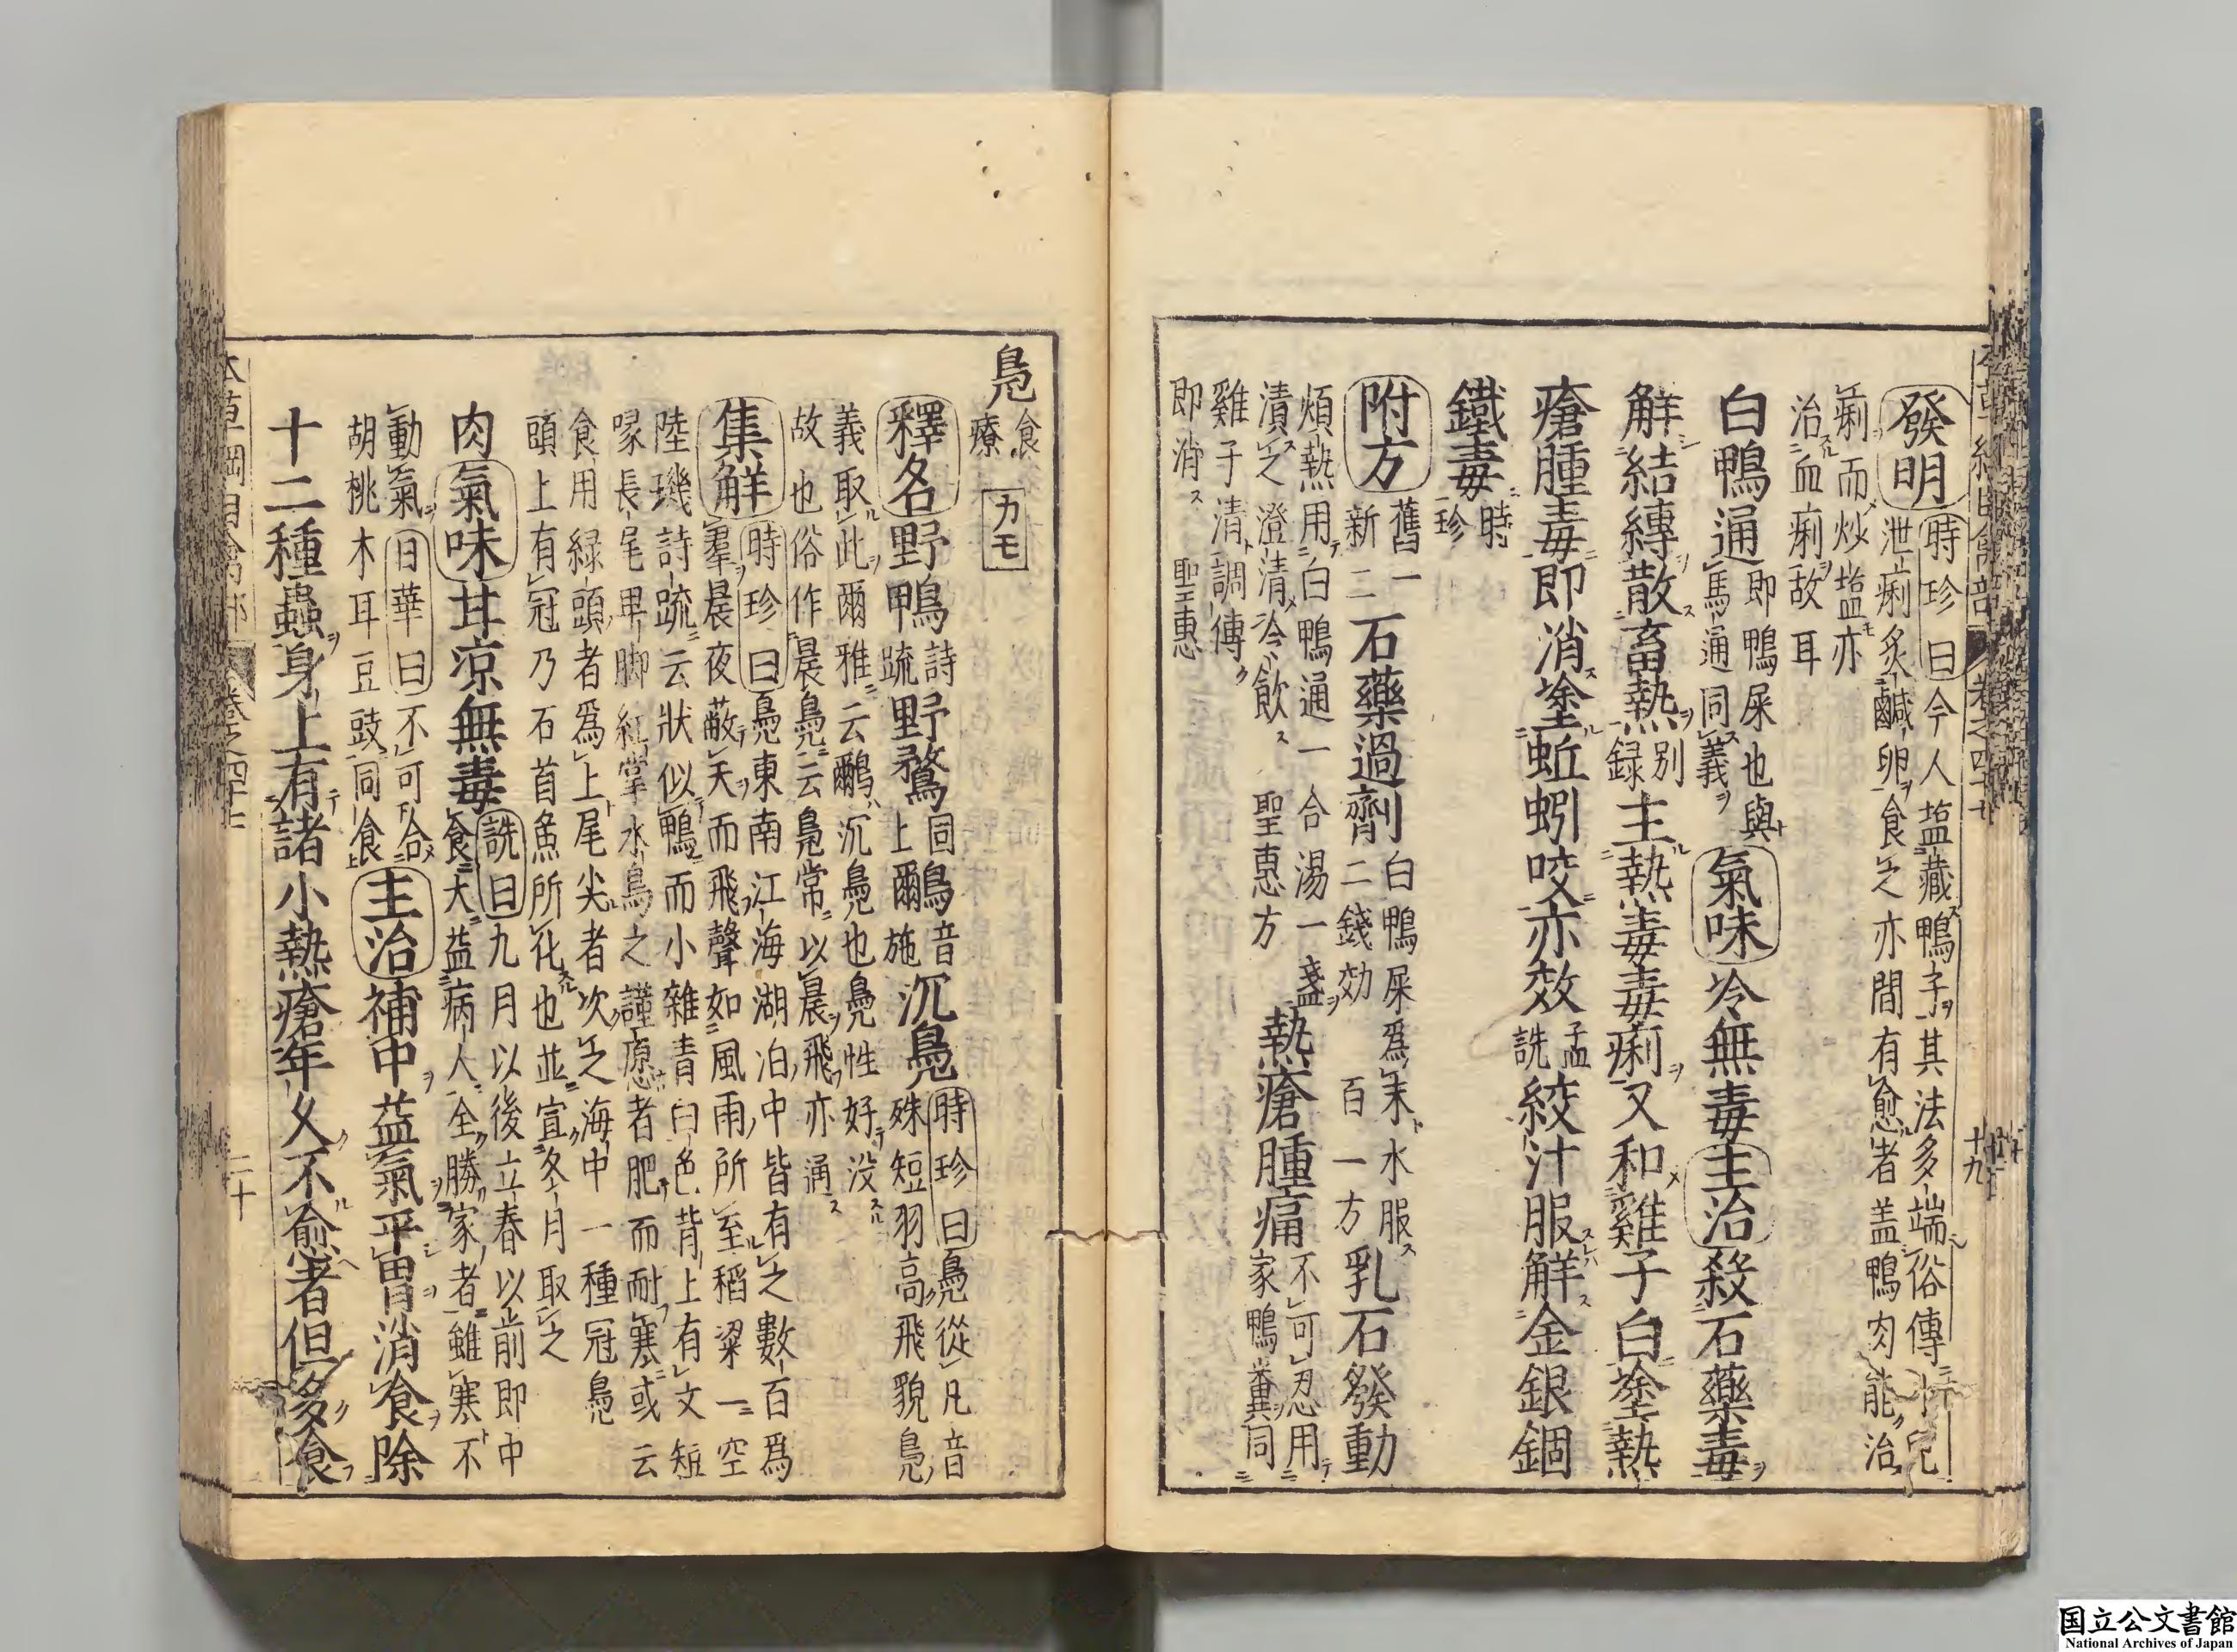 發明
時珍曰今人塩藏鴨子其法多端俗傳
泄痢炙鹹卵食之亦間有愈者盖鴨肉能治
痢而炒塩亦
治血痢故耳
白鴨通
即鴨屎也與
馬通同義
氣味冷無毒主治殺石藥毒
解結縛散畜熱
別
録
主熱毒毒痢又和雞子白塗熱
瘡腫毒即消塗蚯蚓咬亦效
孟
詵
絞汁服解金銀銅
鐵毒
時
珍
附方
舊一
新二
石藥過劑
白鴨屎爲末水服
二錢効 百一方
乳石發動
煩熱用白鴨通一合湯一盞
漬之澄清冷飲 聖惠方
熱瘡腫痛
不可忍用
家鴨糞同
雞子清調傅
即消 聖惠
十九
鳧
食
療
カモ
釋名野鴨
詩
疏
野鶩
同
上
鸍
音
施
沉鳧
時珍曰鳧從几音
殊短羽高飛貌鳧
義取此爾雅云鸍沉鳧也鳧性好没
故也俗作晨鳧云鳧常以晨飛亦通
集解
時珍曰鳧東南江海湖泊中皆有之數百爲
羣晨夜蔽天而飛聲如風雨所至稻粱一空
陸璣詩疏云狀似鴨而小雜青白色背上有文短
喙長尾卑脚紅掌水鳥之謹愿者肥而耐寒或云
食用緑頭者爲上尾尖者次之海中一種冠鳧
頭上有冠乃石首魚所化也並宜冬月取之
肉氣味甘凉無毒
詵曰九月以後立春以前即中
食大益病人全勝家者雖寒不
動氣日華曰不可合
胡桃木耳豆豉同食
主治補中益氣平胃消食除
十二種蟲身上有諸小熱瘡年久不愈者但多食
本草綱目禽部
卷之四十七
二十
国立公文書館
National Archives of Japan